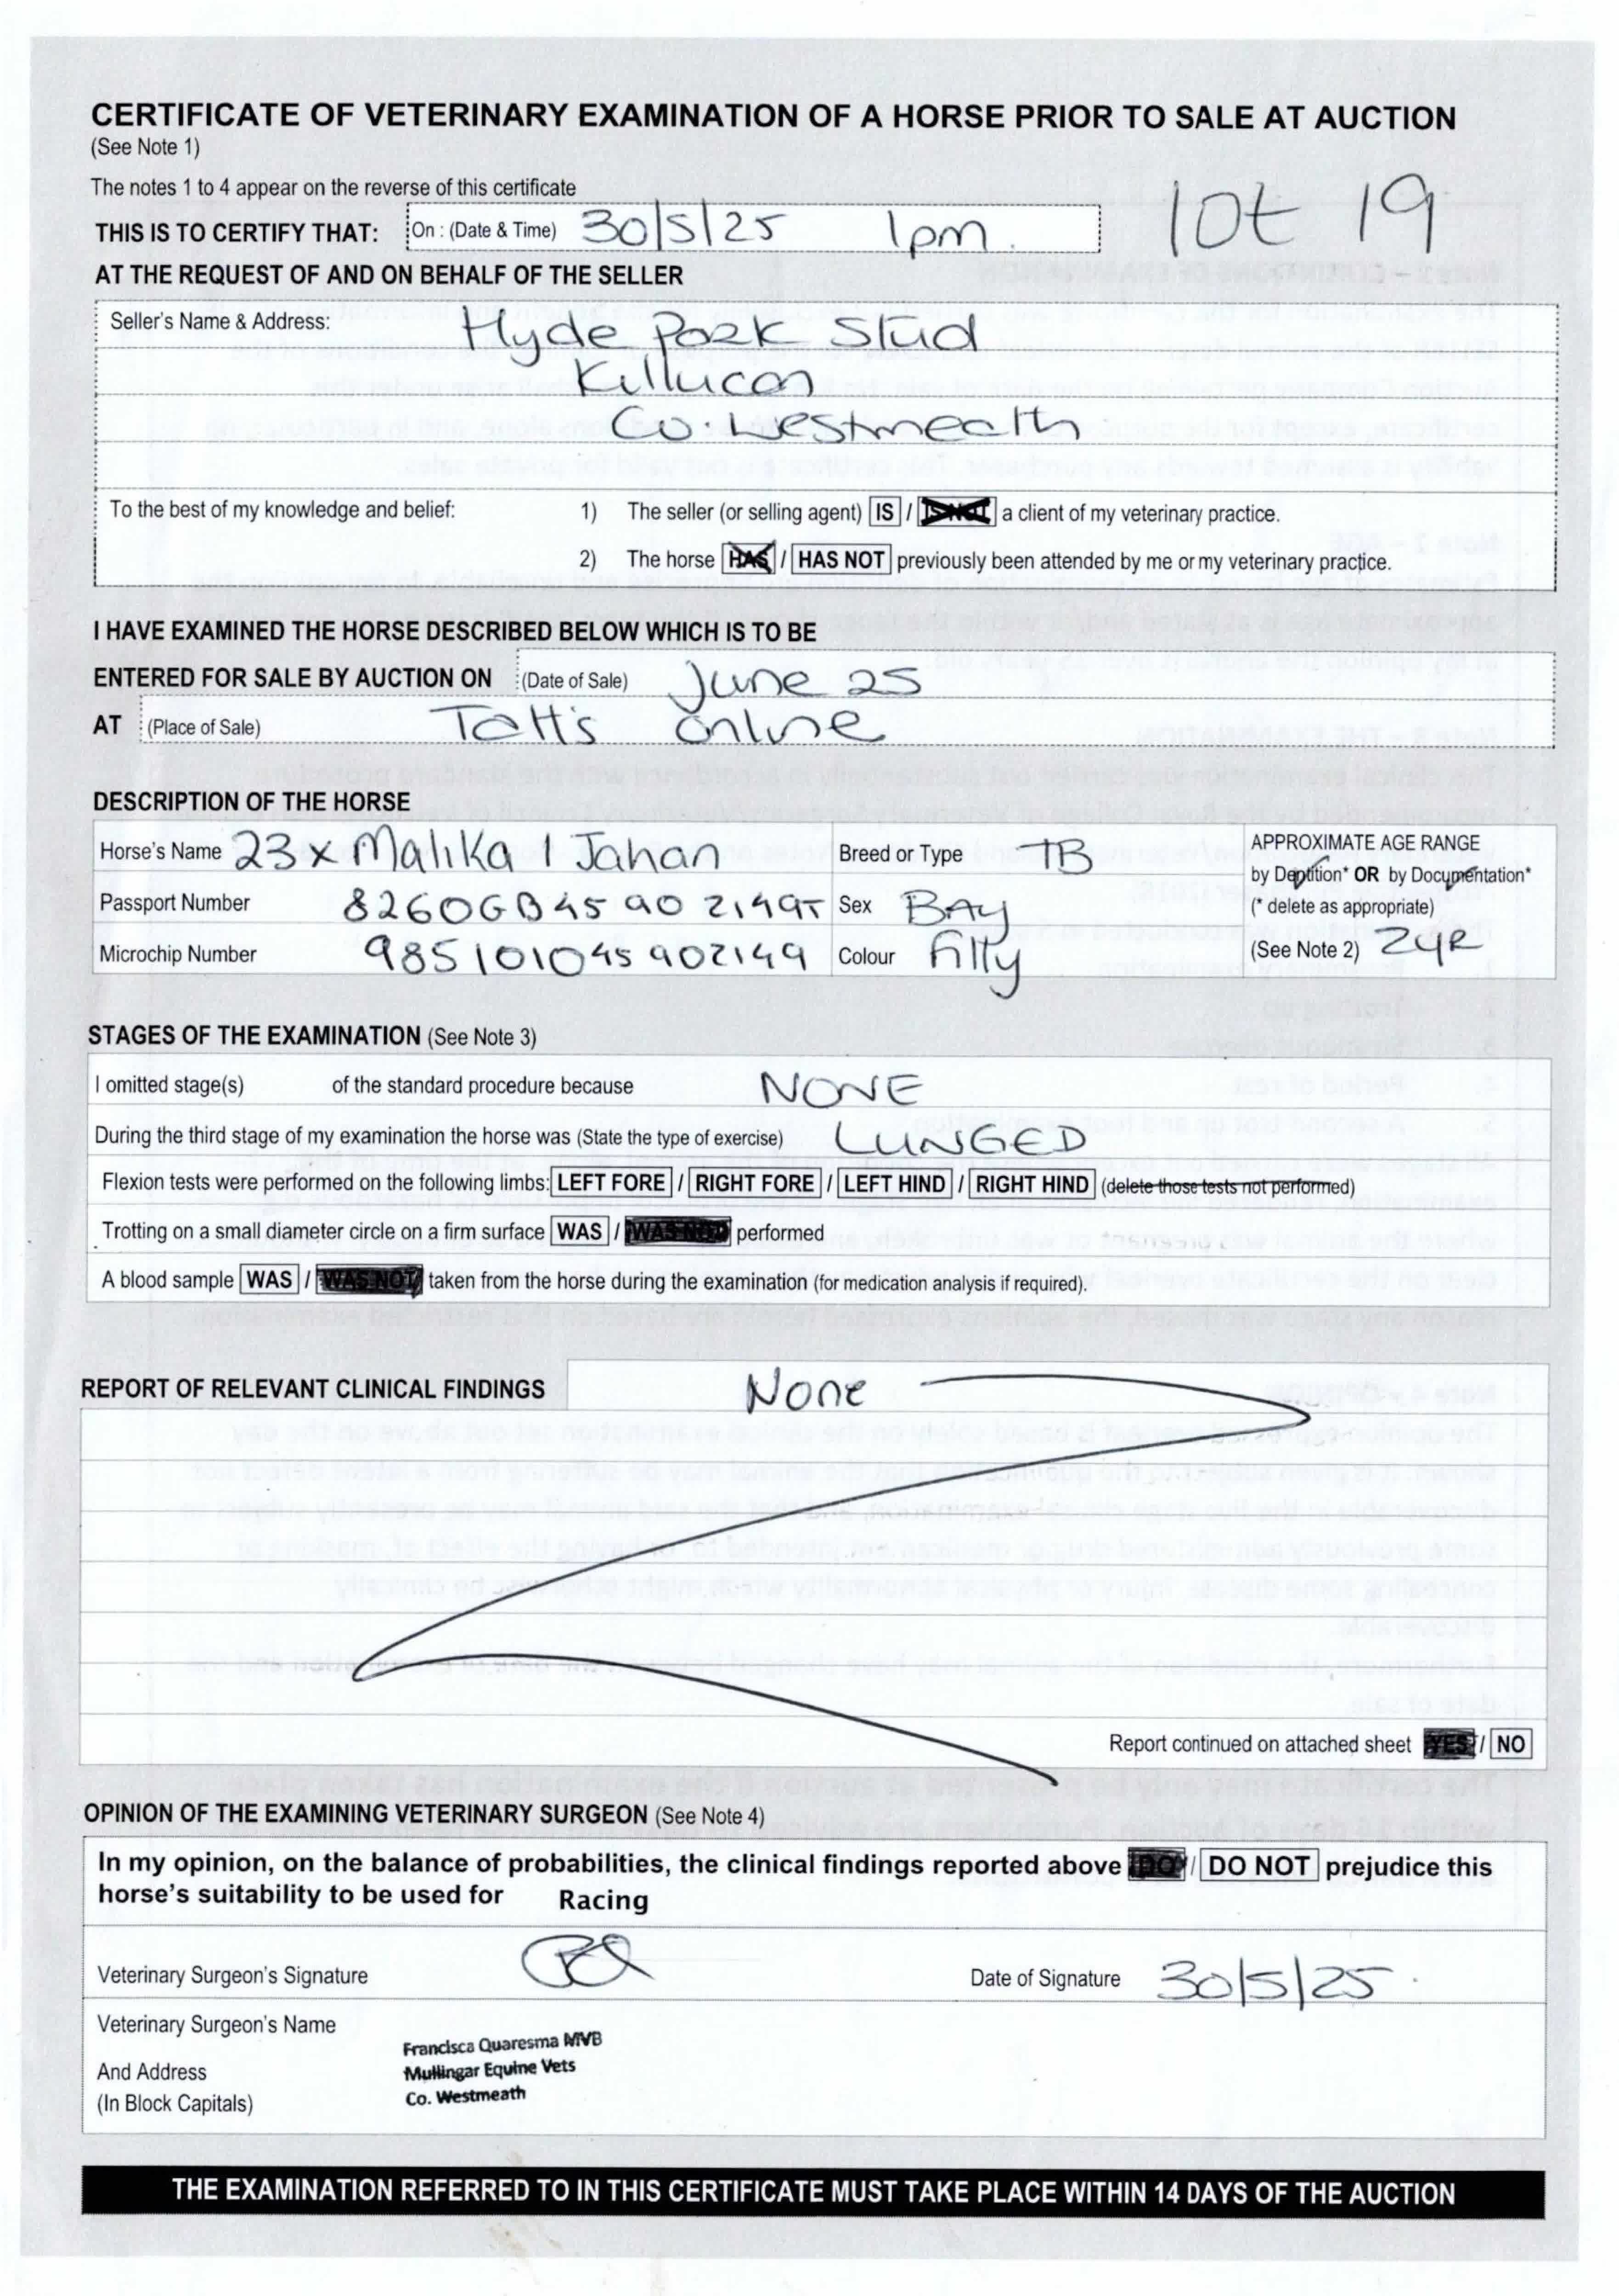 CERTIFICATE OF VETERINARY EXAMINATION OF A HORSE PRIOR TO SALE AT AUCTION
(See Note 1)
The notes 1 to 4 appear on the reverse of this certificate
lot 19
THIS IS TO CERTIFY THAT: On : (Date & Time) 30/5/25 1pm.
AT THE REQUEST OF AND ON BEHALF OF THE SELLER
Seller's Name & Address: Hyde Park Stud
Killucan
Co. Westmeath
To the best of my knowledge and belief: 1) The seller (or selling agent) IS / IS NOT a client of my veterinary practice.
2) The horse HAS / HAS NOT previously been attended by me or my veterinary practice.
I HAVE EXAMINED THE HORSE DESCRIBED BELOW WHICH IS TO BE
ENTERED FOR SALE BY AUCTION ON (Date of Sale) June 25
AT (Place of Sale) Tatt's Online
DESCRIPTION OF THE HORSE
Horse's Name 23 x Malika I Jahan Breed or Type TB APPROXIMATE AGE RANGE
by Dentition* OR by Documentation*
Passport Number Sex BAY (* delete as appropriate)
Microchip Number 985101045902149 Colour Filly (See Note 2) 2YR
STAGES OF THE EXAMINATION (See Note 3)
I omitted stage(s) of the standard procedure because NONE
During the third stage of my examination the horse was (State the type of exercise) LUNGED
Flexion tests were performed on the following limbs: LEFT FORE / RIGHT FORE / LEFT HIND / RIGHT HIND (delete those tests not performed)
Trotting on a small diameter circle on a firm surface WAS / WAS NOT performed
A blood sample WAS / WAS NOT taken from the horse during the examination (for medication analysis if required).
REPORT OF RELEVANT CLINICAL FINDINGS None
Report continued on attached sheet YES / NO
OPINION OF THE EXAMINING VETERINARY SURGEON (See Note 4)
In my opinion, on the balance of probabilities, the clinical findings reported above DO / DO NOT prejudice this
horse's suitability to be used for Racing
Veterinary Surgeon's Signature Date of Signature 30/5/25.
Veterinary Surgeon's Name
Francisca Quaresma MVB
And Address
Mullingar Equine Vets
(In Block Capitals)
Co. Westmeath
THE EXAMINATION REFERRED TO IN THIS CERTIFICATE MUST TAKE PLACE WITHIN 14 DAYS OF THE AUCTION